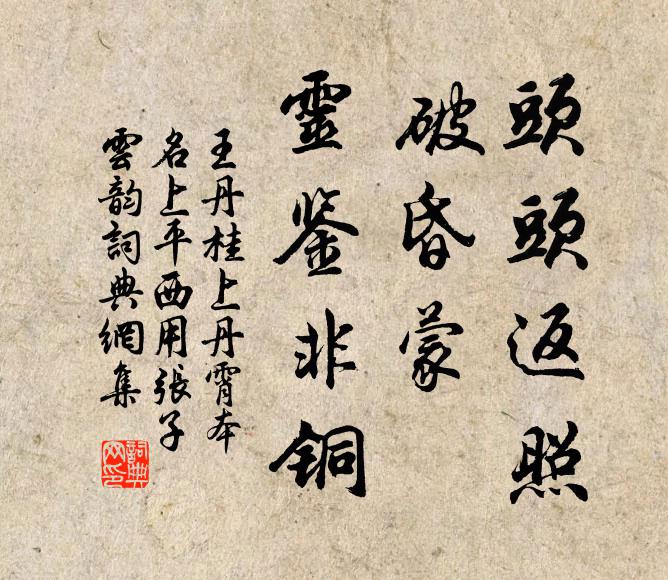 頭頭返照
破昏蒙
靈鉴非铜
王丹桂上丹霄本
名上平西用張子
雲韵詞典網集
詞典
网印